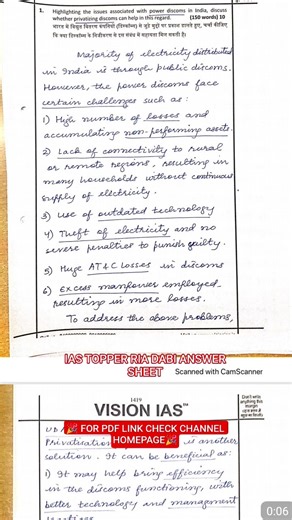 1. Highlighting the issues associated with power discoms in India, discuss
whether privatizing discoms can help in this regard. (150 words) 10
भारत में विद्युत वितरण कंपनियों (डिस्कॉम्स) से जुड़े मुद्दों पर प्रकाश डालते हुए, चर्चा कीजिए
कि क्या डिस्कॉम्स के निजीकरण से इस संबंध में सहायता मिल सकती है।
Majority of electricity distributed
in India is through public discoms.
However, the power discoms face
certain challenges such as:
1) High number of losses and
accumulating non-performing assets.
2) Lack of connectivity to rural
or remote regions, resulting in
many households without continuous
supply of electricity.
3) Use of outdated technology
4) Theft of electricity and no
severe penalties to punish guilty.
5) Huge AT&C Losses in discoms
6) Excess manpower employed
resulting in more losses.
To address the above problems,
IAS TOPPER RIA DABI ANSWER
SHEET
Scanned with CamScanner
1419
VISION IAS™
Don't write
anything this
margin
🎉 FOR PDF LINK CHECK CHANNEL
HOMEPAGE🎉
Privatisation is another
solution. It can be beneficial as:
1) It may help bring efficiency
in the discoms functioning, with
better technology and management
0:06